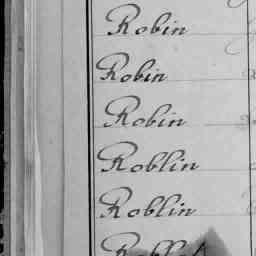 Robin
Robin
Robin
Roblin
Roblin